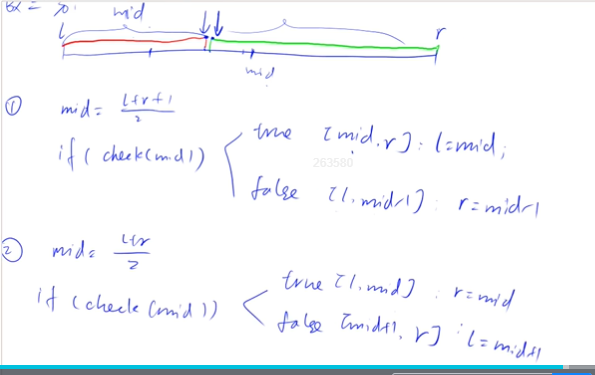 mid
l
r
mid
① mid = l+r+1 / 2
if ( check(mid) )
true [mid, r] : l=mid;
263580
false [l, mid-1] : r=mid-1
② mid = l+r / 2
if (check(mid))
true [l, mid] : r=mid
false [mid+1, r] : l=mid+1